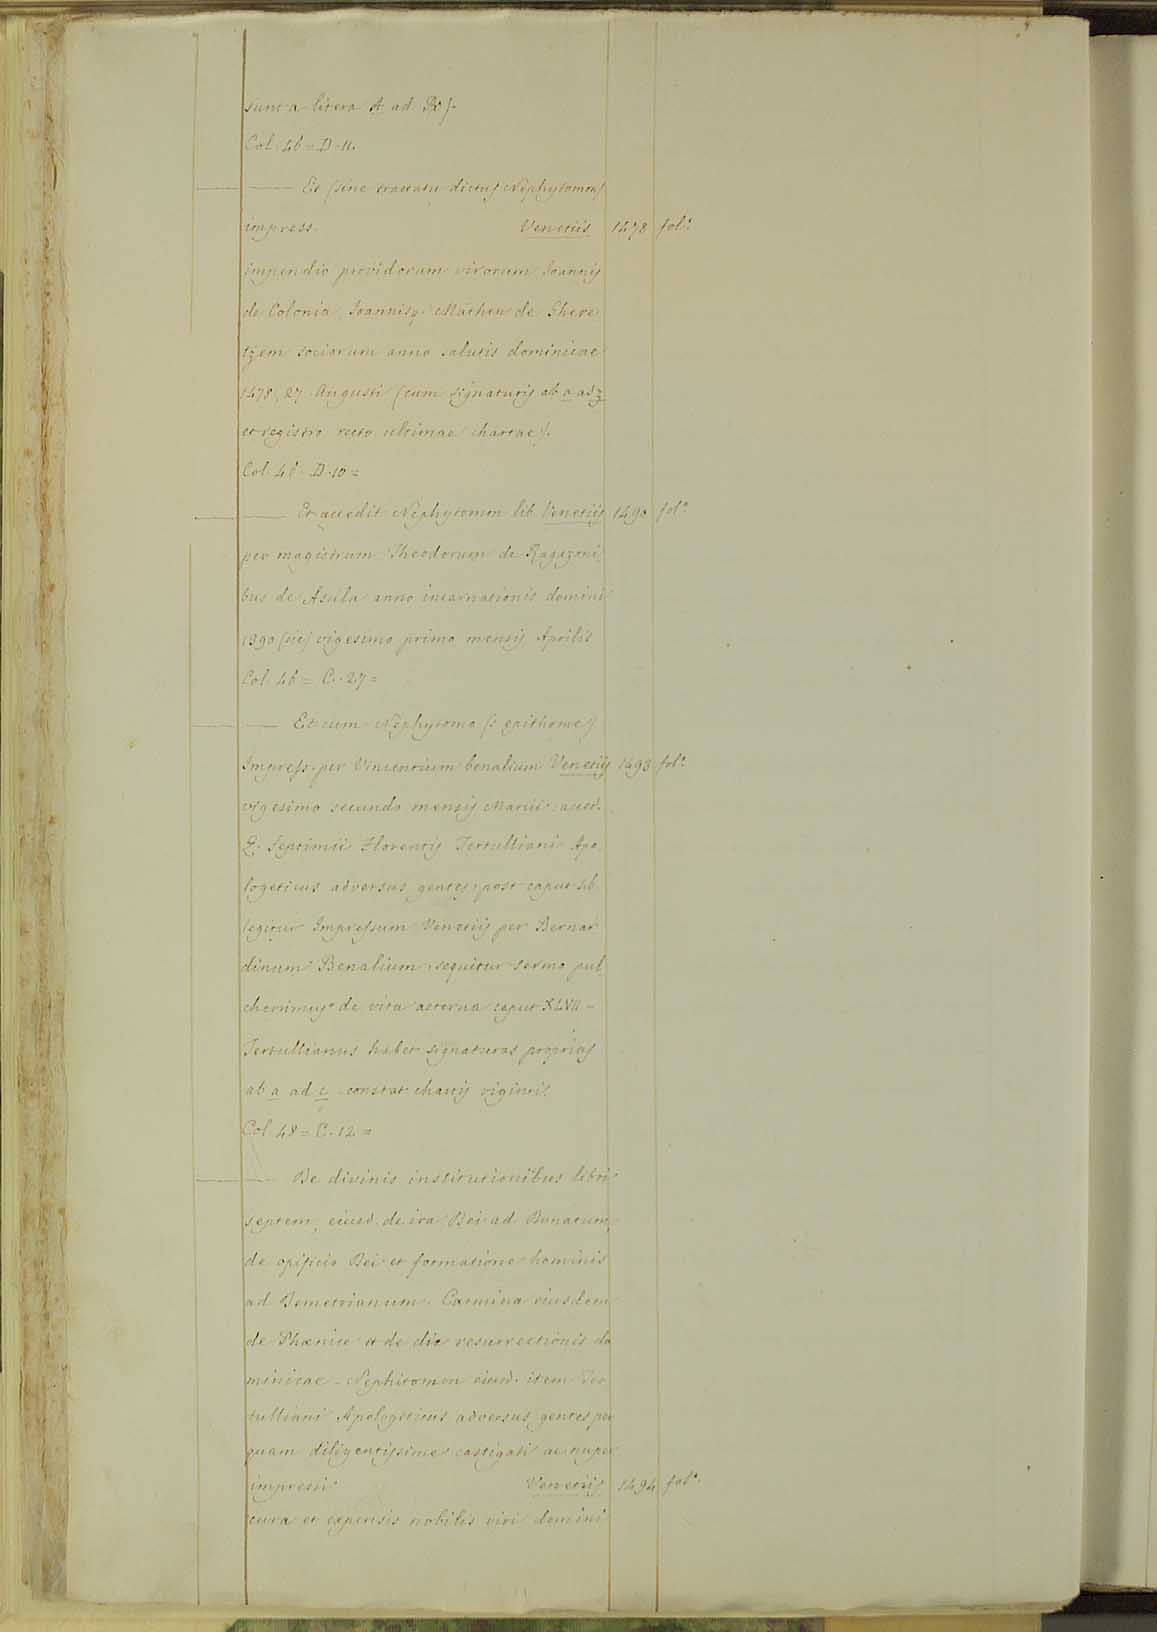 sunt a litera A ad
Col. 46 = D. 11.
Et (sine tractatu dictus Nephytomon)
impress. Venetiis 1478 fol.º
impendio providorum virorum Joannis
de Colonia, Joannisq. Mathen de Ghere
tzem sociorum anno salutis dominicae
1478, 27 Augusti (cum signaturis ab a ad z
et registro recto ultimae chartae).
Col. 46 D. 10 =
Et accedit Nephytomon lib. Venetiis 1490 fol.º
per magistrum Theodorum de Ragazoni
bus de Asula anno incarnationis domini
1390 (sic) vigesimo primo mensis Aprilis
Col. 46 = C. 27 =
Et cum Nephytomo (s epithome)
Impress. per Vincentium benalium Venetiis 1493 fol.º
vigesimo secundo mensis Marcii
Q. Septimii Florentis Tertulliani Apo
logeticus adversus gentes, post caput
legitur Impressum Venetiis per Bernar
dinum Benalium, sequitur sermo pul
cherrimus de vita aeterna caput XLVII -
Tertullianus habet signaturas proprias
ab a ad c constat chartis viginti.
Col. 48 = C. 12 =
De divinis institutionibus libri
septem, eiusd. de ira Dei ad Donatum,
de opificio Dei et formatione hominis
ad Demetrianum. Carmina eiusdem
de Phœnice et de die resurrectionis do
minicae - Nephitomon eiusd. item Ter
tulliani Apologeticus adversus gentes per
quam diligentissime castigati ac nuper
impressi Venetiis 1494 fol.º
cura et expensis nobilis viri domini